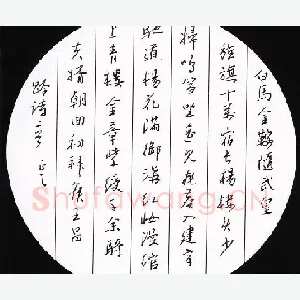 白馬金鞍隨武皇
旌旗十萬宿長楊樓頭少
婦鳴箏坐遙見飛塵入建章
馳道楊花滿御溝紅妝漫綰
上青樓金章紫綬千餘騎
夫婿朝回初拜侯王昌
齡詩
Shufawang.CN